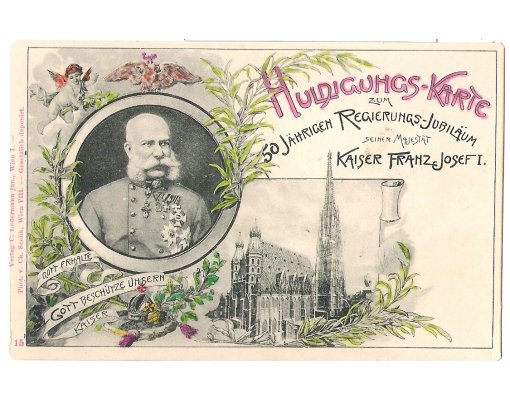 HULDIGUNGS-KARTE
ZUM
50 JÄHRIGEN REGIERUNGS-JUBILÄUM
SEINER MAJESTÄT
KAISER FRANZ JOSEF I.
GOTT ERHALTE
GOTT BESCHÜTZE UNSERN
KAISER
Verlag C. Ledermann jun., Wien I.
Phot. v. Ch. Scolik, Wien VIII. — Gesetzlich deponirt.
15